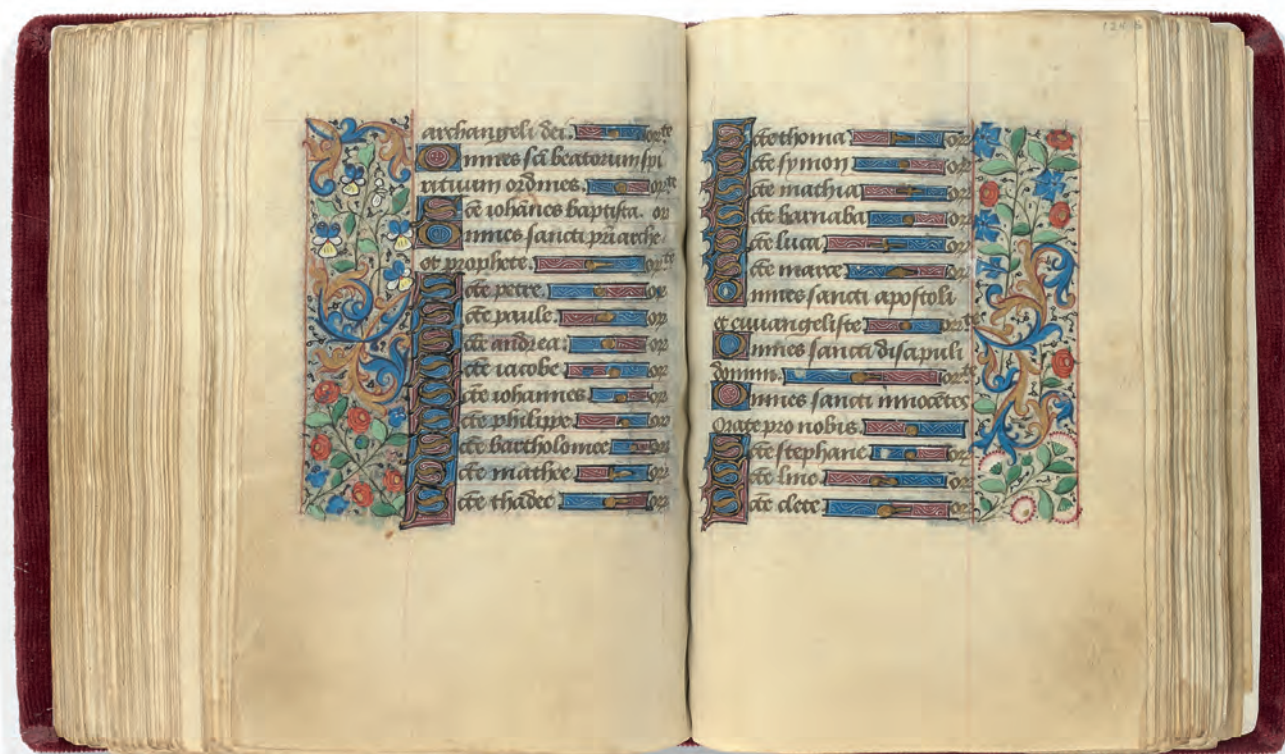 archangeli dei. orate
Omnes sci beatorum spi
rituum ordines. orte
Scte iohannes baptista. or
Omnes sancti priarche
et prophete. orte
Scte petre. or
Scte paule. or
Scte andrea. or
Scte iacobe. or
Scte iohannes. or
Scte philippe. or
Scte bartholomee or
Scte mathee or
Scte thadee or
124
Scte thoma or
Scte symon or
Scte mathia or
Scte barnaba or
Scte luca or
Scte marce or
Omnes sancti apostoli
et euuangeliste orte
Omnes sancti discipuli
domini. orte
Omnes sancti innocetes
Orate pro nobis.
Scte stephane or
Scte line or
Scte clete. or